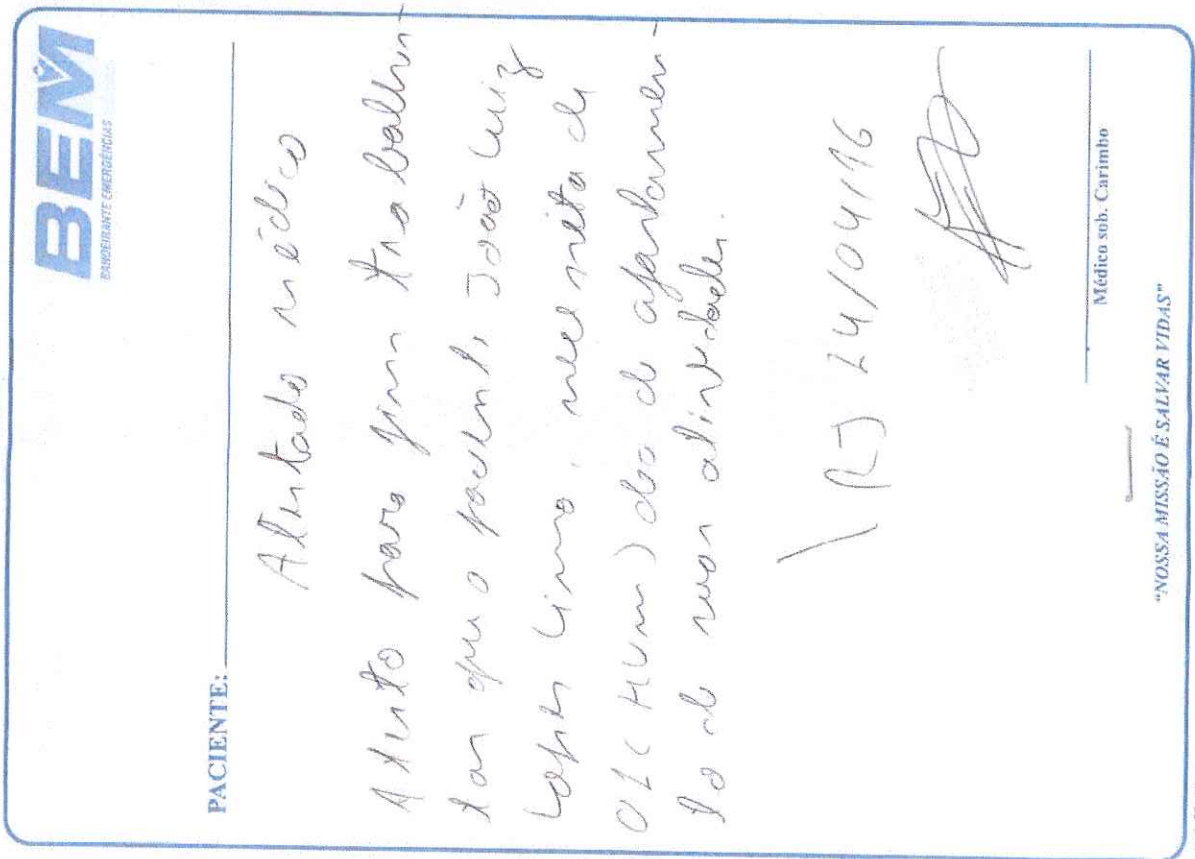 BEM
BANDEIRANTE EMERGÊNCIAS
PACIENTE:
Atestado médico
Atesto para fins trabalhis-
tas que o paciente, João Luiz
Lopes Limo, necessita de
01 (Hum) dia de afastamen-
to de suas atividades.
RJ 14/04/16
Médico sob. Carimbo
"NOSSA MISSÃO É SALVAR VIDAS"